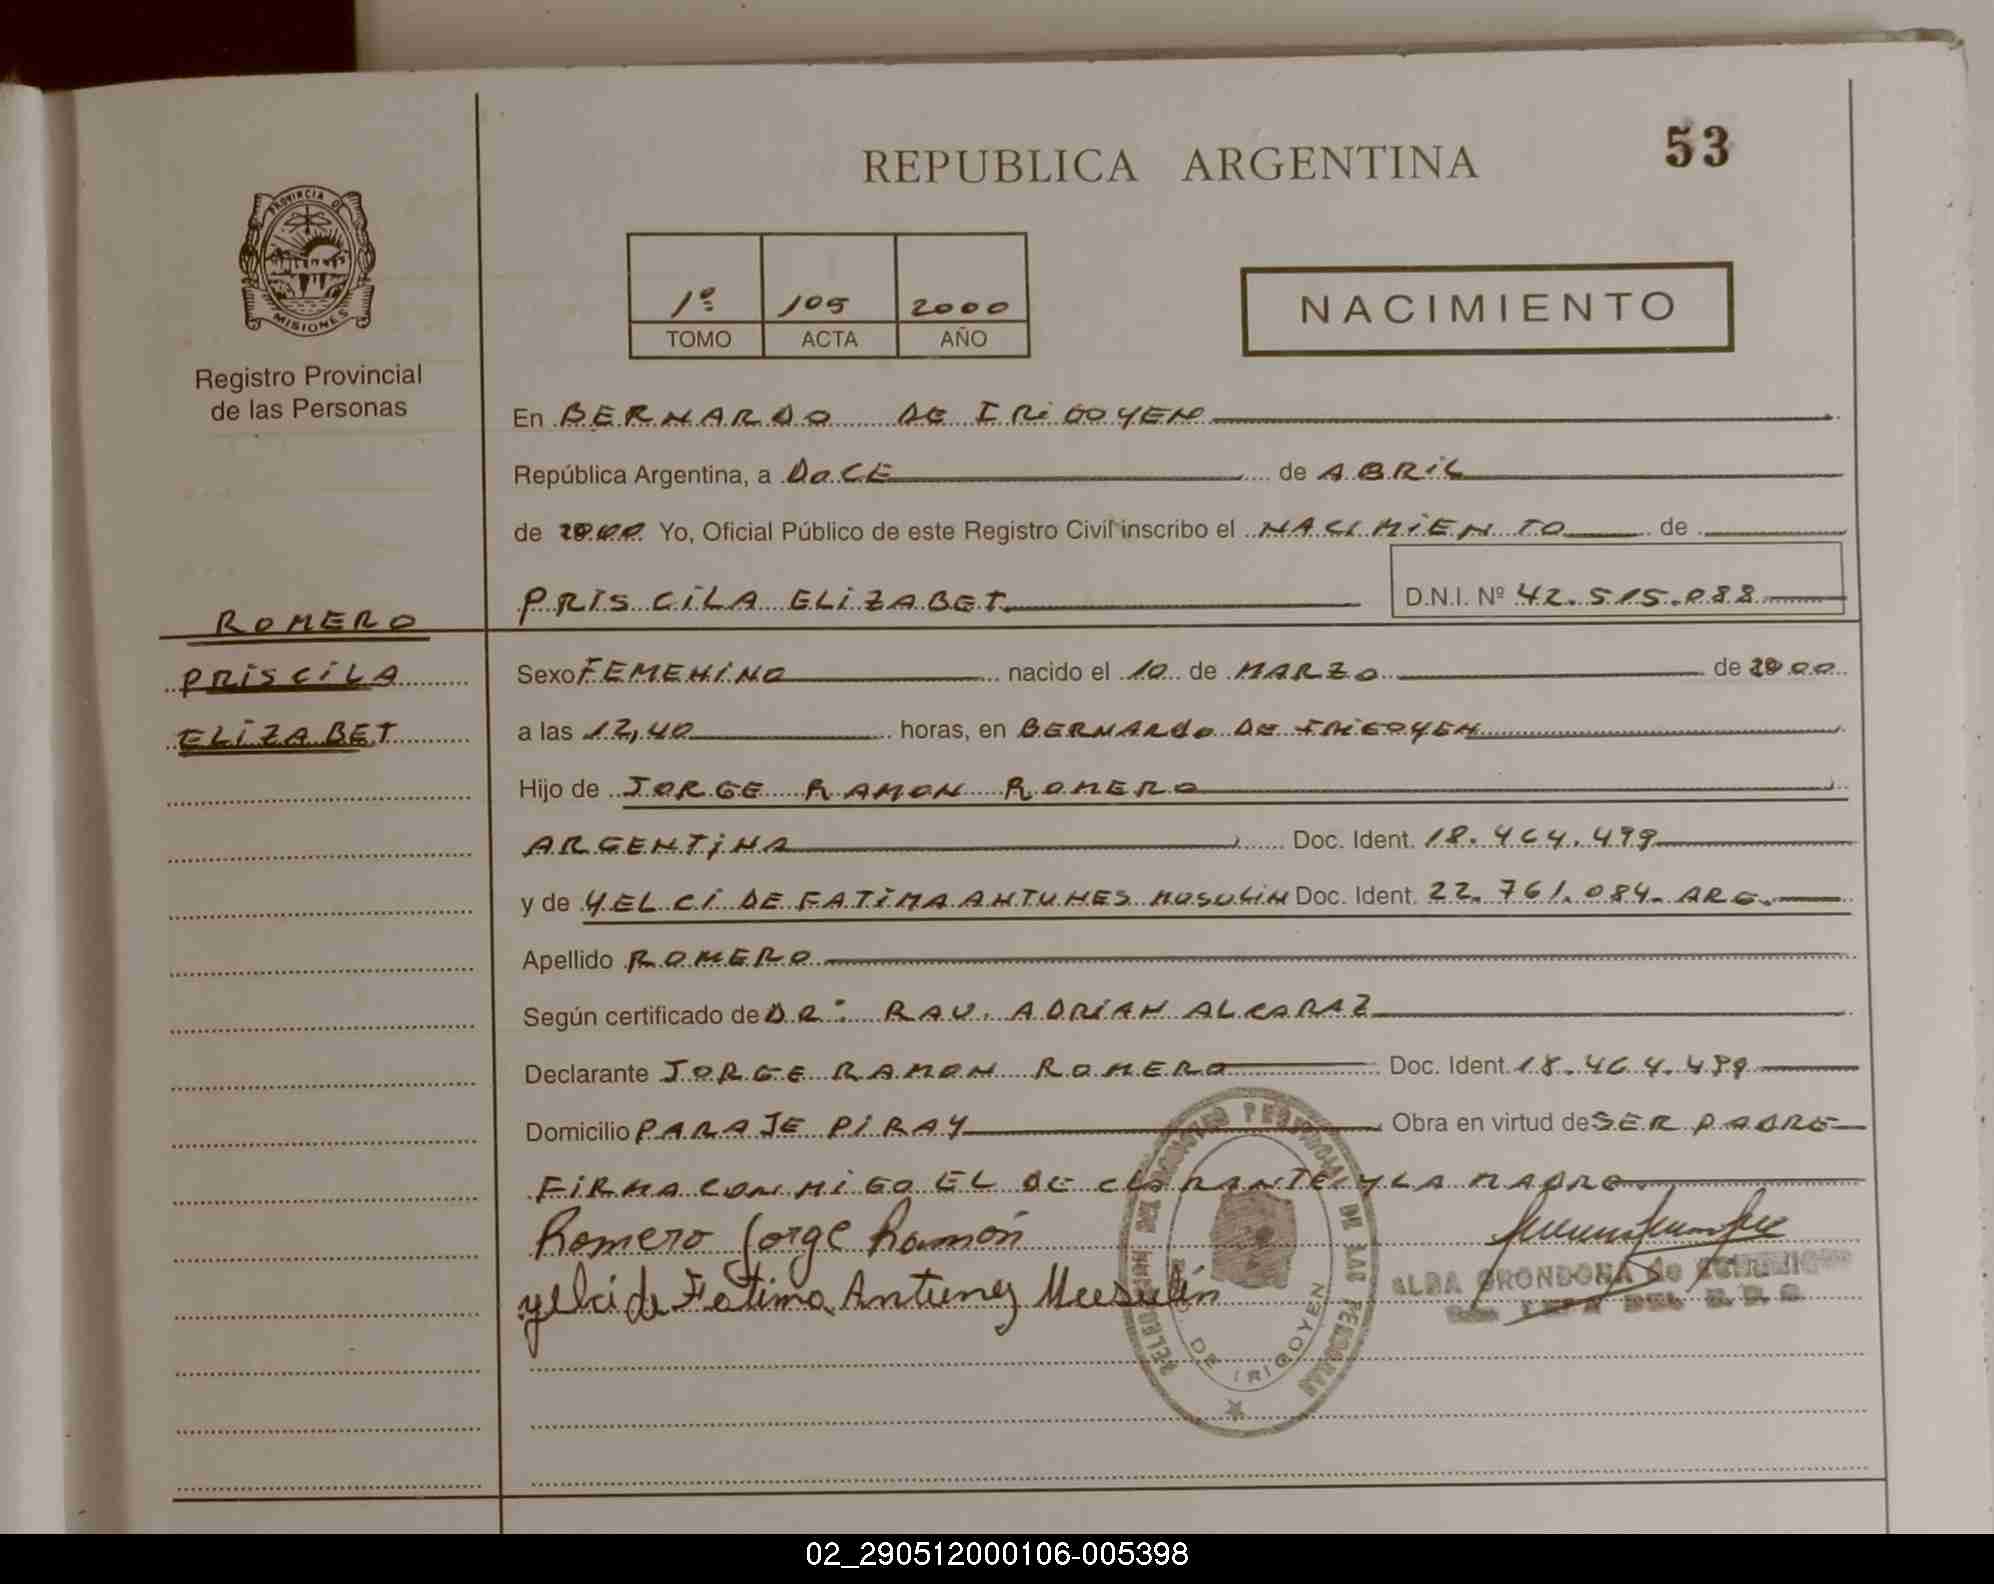 53
REPUBLICA ARGENTINA
PROVINCIA DE
MISIONES
Registro Provincial
de las Personas
1º 105 2000
TOMO ACTA AÑO
NACIMIENTO
En BERNARDO DE IRIGOYEN
República Argentina, a DOCE de ABRIL
de 2000 Yo, Oficial Público de este Registro Civil inscribo el NACIMIENTO de
PRISCILA ELIZABET D.N.I. Nº 42.515.088
ROMERO
PRISCILA
ELIZABET
Sexo FEMENINO nacido el 10 de MARZO de 2000
a las 12,40 horas, en BERNARDO DE IRIGOYEN
Hijo de JORGE RAMON ROMERO
ARGENTINA Doc. Ident. 18.464.499
y de YELCI DE FATIMA ANTUNES MUSULIN Doc. Ident. 22.761.084. ARG.
Apellido ROMERO
Según certificado de DR: RAU. ADRIAN ALCARAZ
Declarante JORGE RAMON ROMERO Doc. Ident. 18.464.499
Domicilio PARAJE PIRAY Obra en virtud de SER PADRE
FIRMA CONMIGO EL DECLARANTE Y LA MADRE.
Romero Jorge Ramón
yelci de Fatima Antunez Musulin
ALBA GRONDONA de
DE IRIGOYEN
DE LAS PERSONAS
02_290512000106-005398